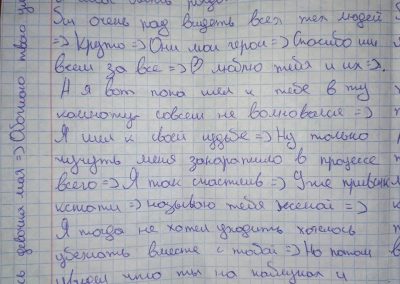 был очень рад видеть всех тех людей
=) Круто =) Они мои герои =) Спасибо им
всем за все =) ♡ люблю тебя и их =).
А я вот пока шел к тебе в ту
комнату совсем не волновался =)
Я шел к своей судьбе =) Ну только
чучуть меня закоратило в процессе
всего =) Я так счастлив =) Уже привык
кстати =) называю тебя Женой =)
Я тогда не хотел уходить хотелось
убежать вместе с тобой =) Но потом в
что ты на каблуках и
девочка моя =) Обожаю твою